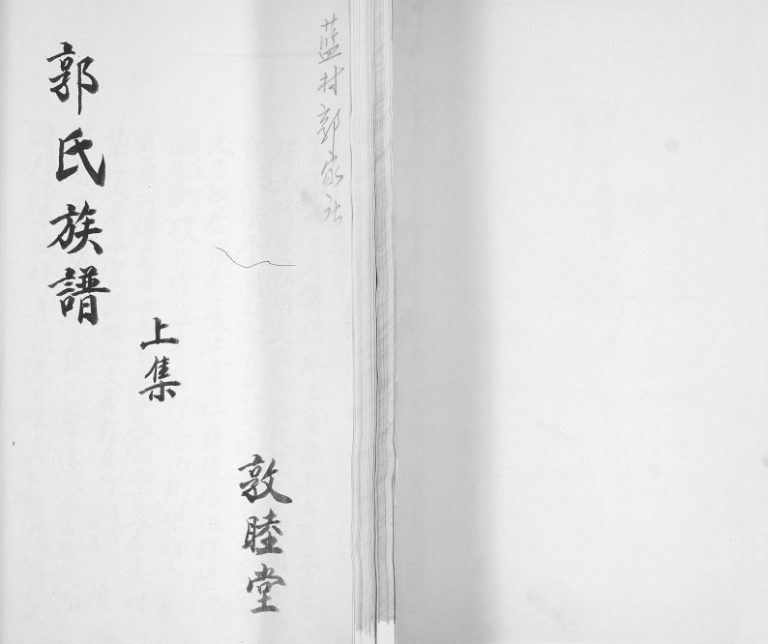 郭氏族譜
上集
敦睦堂
蓝村郭家